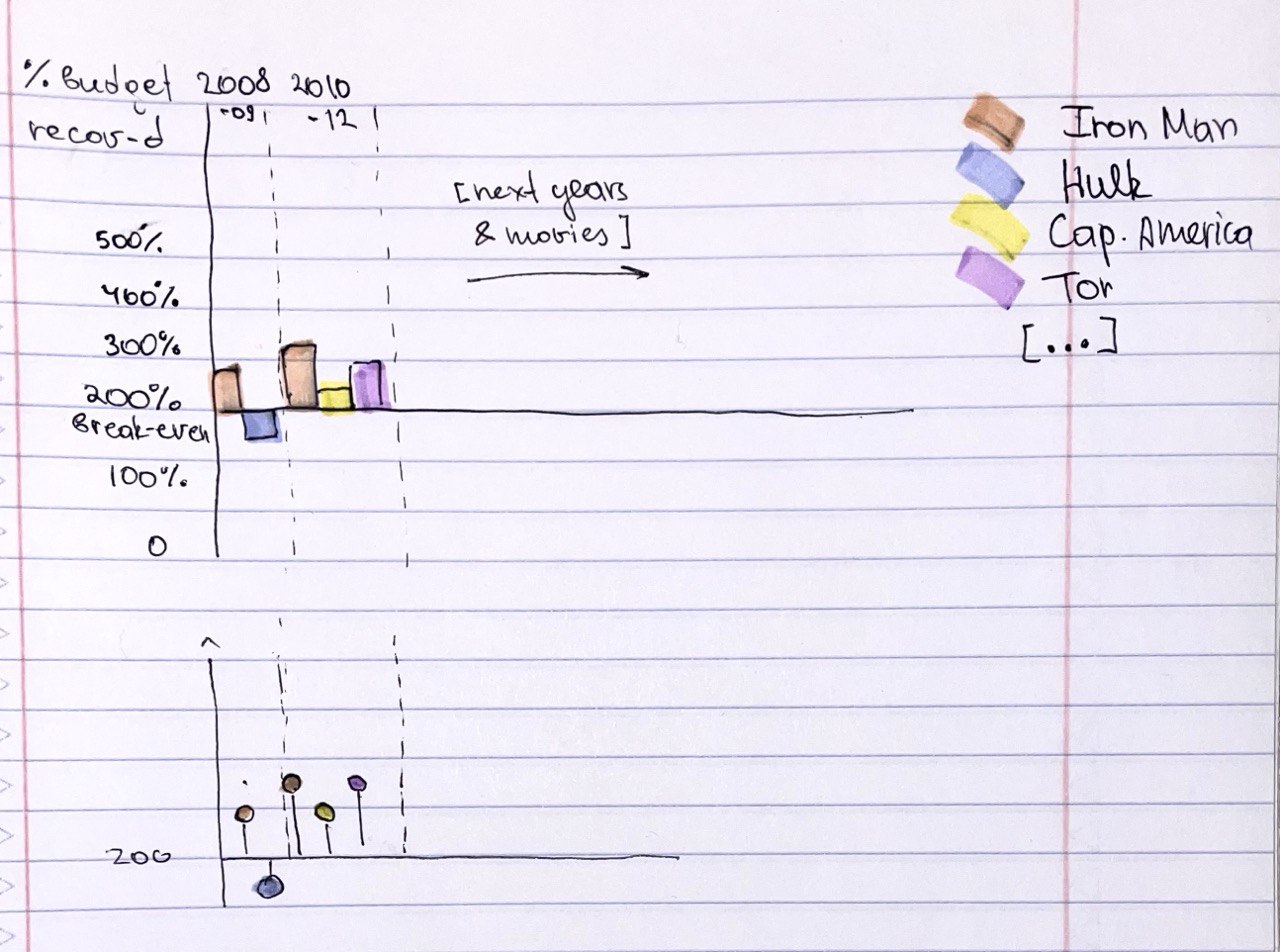 % Budget 2008 2010
recov-d -09 -12
[next years
& movies]
500%
400%
300%
200%
Break-even
100%
0
Iron Man
Hulk
Cap. America
Tor
[...]
200